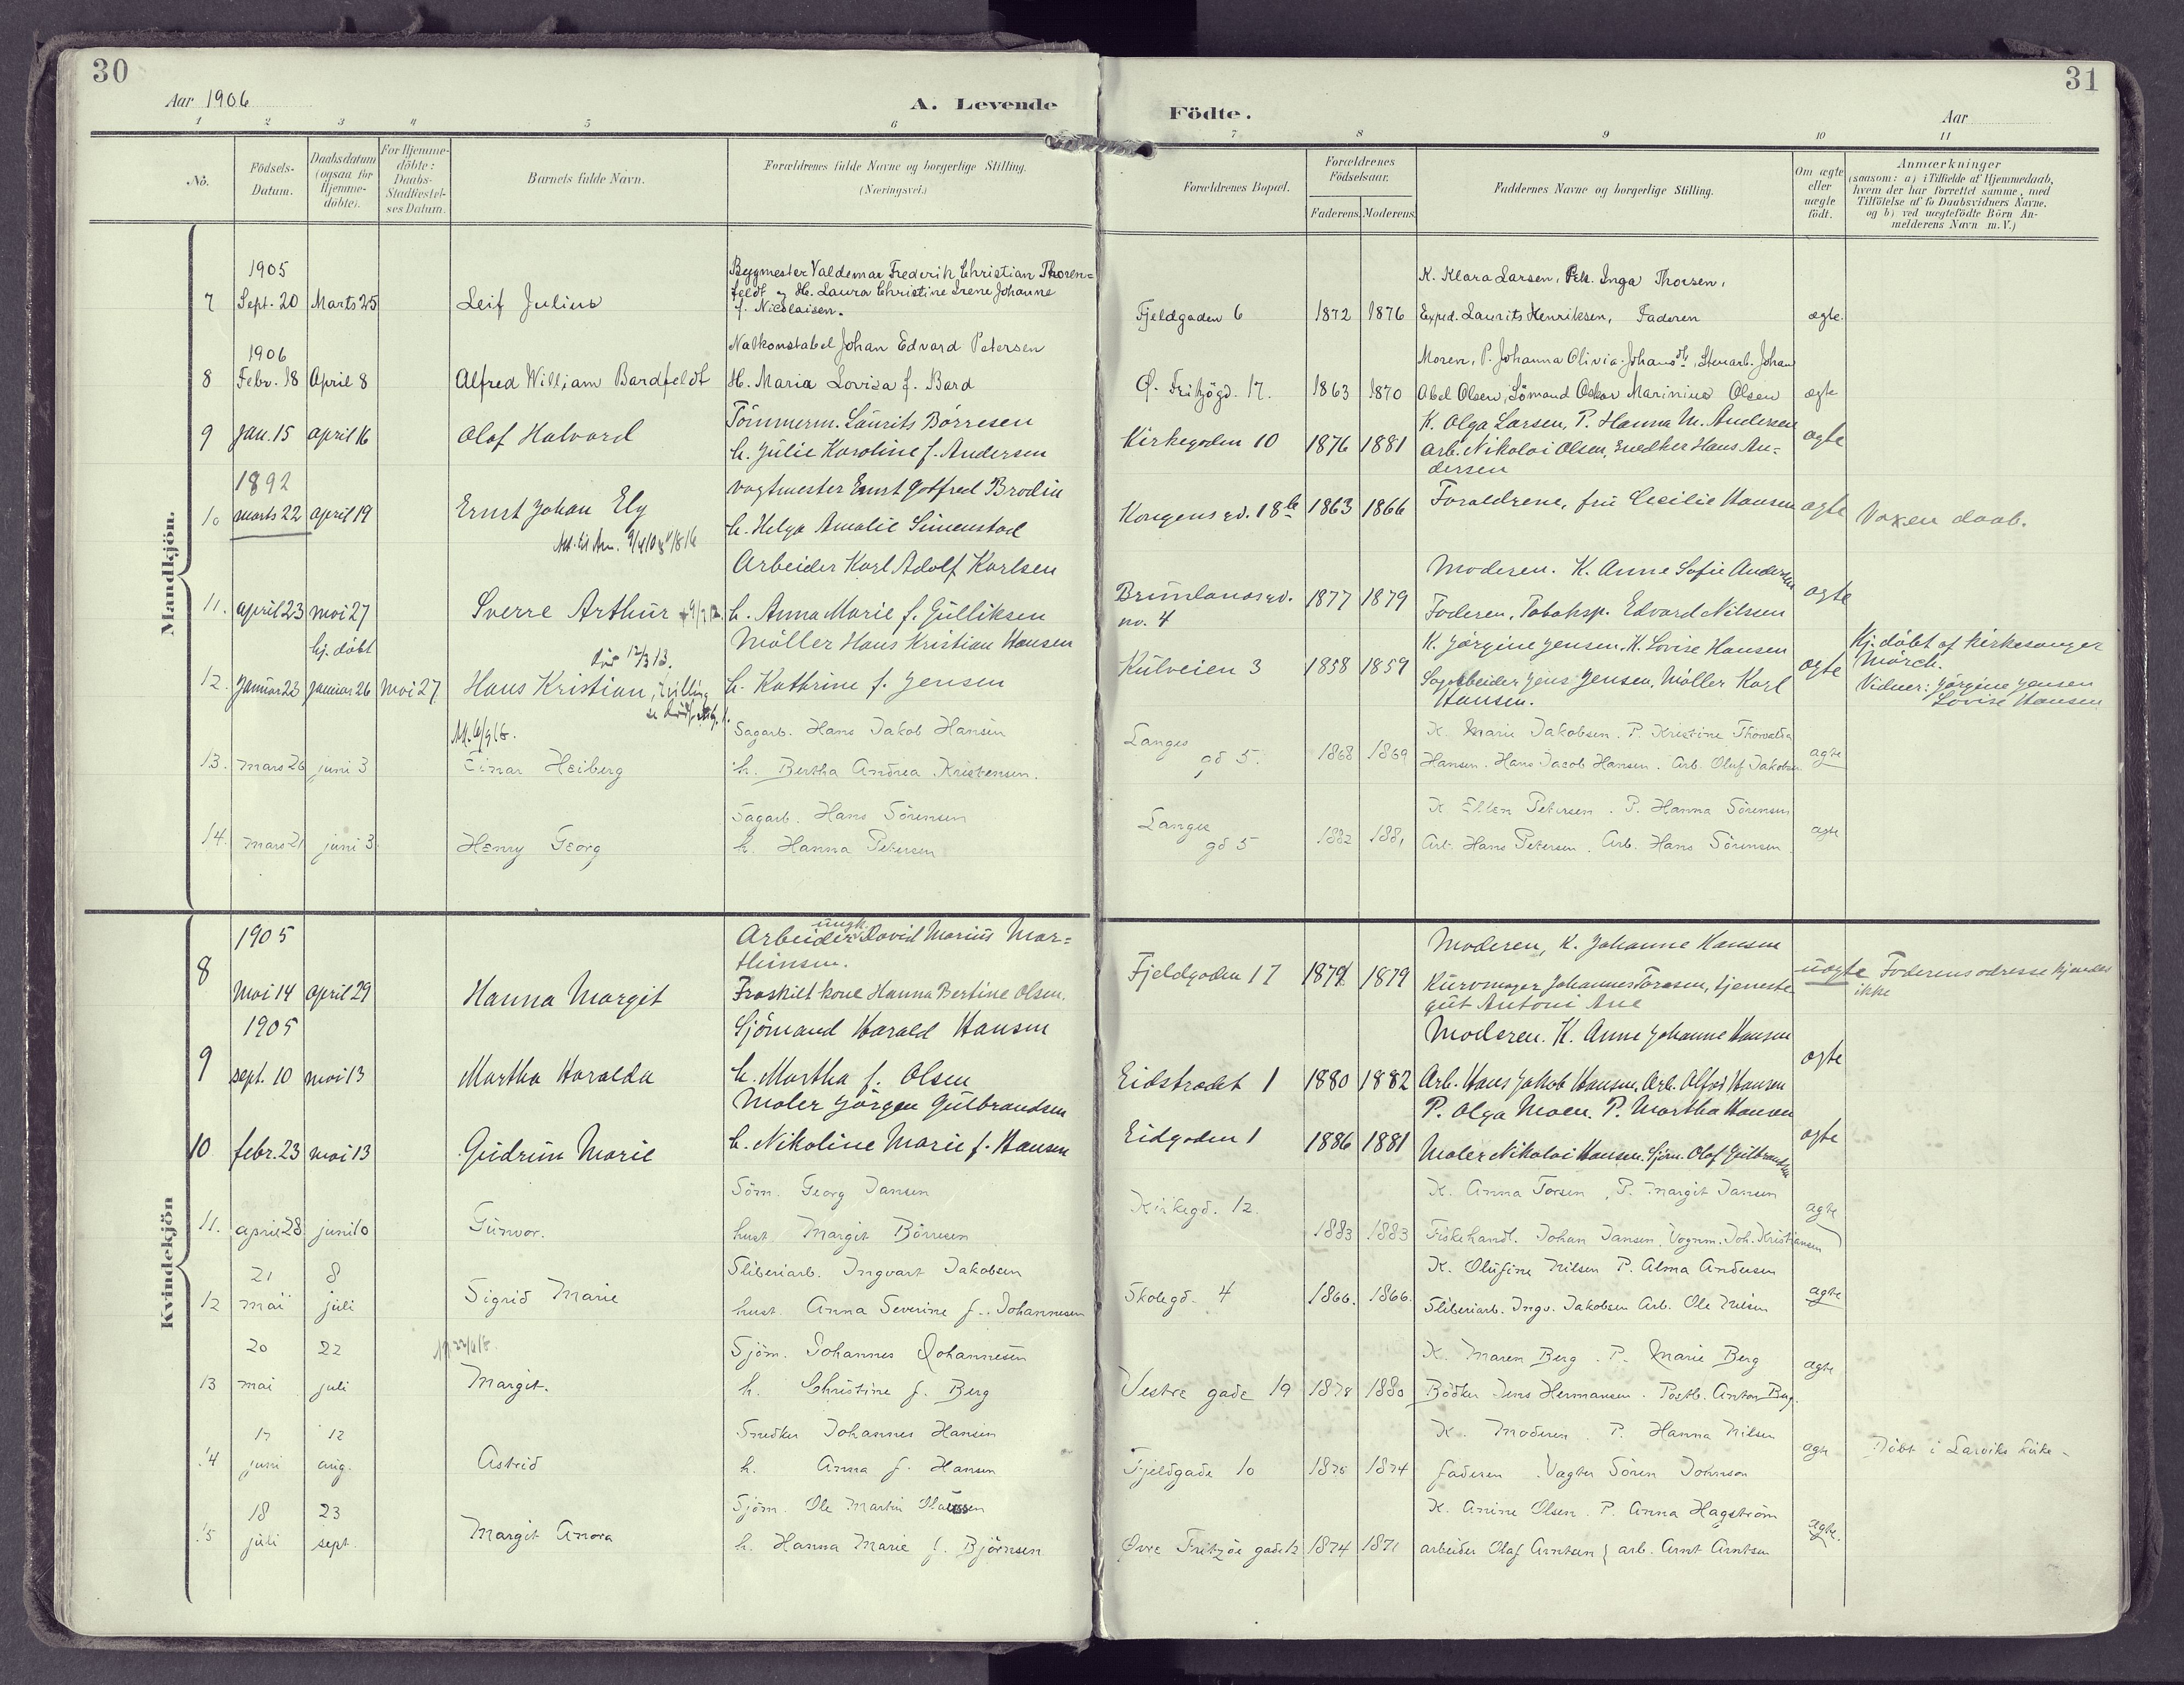 30
31
Aar 1906
A. Levende
Födte.
Aar
1 2 3 4 5 6 7 8 9 10 11
No.
Födsels-Datum.
Daabsdatum (ogsaa for Hjemme-döbte).
For Hjemme-döbte: Daabs-Stadfæstel-ses Datum.
Barnets fulde Navn.
Forældrenes fulde Navne og borgerlige Stilling. (Næringsvei.)
Forældrenes Bopæl.
Forældrenes Födselsaar.
Faderens.
Moderens.
Faddernes Navne og borgerlige Stilling.
Om ægte eller uægte födt.
Anmærkninger
(saasom: a) i Tilfælde af Hjemmedaab, hvem der har forrettet samme, med Tilföielse af to Daabsvidners Navne. og b) ved uægtefödte Börn An-melderens Navn m. V.)
Mandkjön.
1905
Bygmester Valdemar Frederik Christian Thoren=
K. Klara Larsen, Pik. Inga Thorsen,
7 Sept. 20 Marts 25 Leif Julius
feldt og H. Laura Christine Irene Johanne
f. Nicolaisen.
Fjeldgaden 6 1872 1876 Exped. Laurits Henriksen, Faderen ægte.
1906
Natkonstabel Johan Edvard Petersen
Moren, P. Johanna Olivia Johansdt., Stenarb. Johan
8 Febr. 18 April 8 Alfred William Bardfeldt H. Maria Lovisa f. Bard
Ø. Fritzögd. 17. 1863 1870 Abel Olsen, Sömand Oskar Marinius Olsen ægte
Tömmerm. Laurits Börresen
K. Olga Larsen, P. Hanna M. Andersen
9 Jan. 15 april 16 Olaf Halvard h. Julie Karoline f. Andersen
Kirkegaden 10 1876 1881 arb. Nikolai Olsen, Snedker Hans An=
dersen
ægte
1892
Vagtmester Ernst Gotfred Brodin
10 marts 22 april 19 Ernst Johan Ely h. Helga Amalie Simenstad
Kongensgd. 18b 1863 1866 Forældrene, fru Cecilie Hansen ægte Voxen daab.
Arbeider Karl Adolf Karlsen
Moderen. K. Anne Sofie Andersen
11. april 23 mai 27 Sverre Arthur h. Anna Marie f. Gulliksen
Brunlanesgd.
no. 4
1877 1879 Faderen, Tobaksp. Edvard Nilsen ægte
hj. döbt
död 12/3 13.
Möller Hans Kristian Hansen
K. Jörgine Jensen. K. Lovise Hansen
Hj. döbt af kirkesanger
Mörch.
12. Januar 22 januar 26 mai 27 Hans Kristian, tvilling h. Kathrine f. Jensen
Kulveien 3 1858 1859 Sagarbeider Jens Jensen, Möller Karl
Hansen.
ægte
Vidner: Jörgine Jensen
Lovise Hansen
Sagarb. Hans Jakob Hansen
K. Marie Jakobsen. P. Kristine Thorvalda
13. mars 26 juni 3 Einar Heiberg h. Bertha Andrea Kristensen.
Langes
gd 5.
1868 1869 Hansen. Hans Jacob Hansen. Arb. Oluf Jakobsen ægte
Sagarb. Hans Sörensen
K Ellen Petersen. P. Hanna Sörensen
14. mars 21 juni 3 Henry Georg h. Hanna Petersen
Langes
gd 5
1882 1881 Arb. Hans Petersen. Arb. Hans Sörensen. ægte
Kvindekjön
1905
Arbeider ungk. David Marius Mar=
thinsen.
Moderen, K. Johanne Hansen
8 Mai 14 april 29 Hanna Margit Fraskilt kone Hanna Bertine Olsen.
Fjeldgaden 17 1879 1879 Kurvmager Johannes Toresen, tjeneste
gut Antoni Ane
uægte
Faderens adresse kjendes
ikke
1905
Sjömand Harald Hansen
Moderen. K. Anne Johanne Hansen
9 sept. 10 mai 13 Martha Haralda h. Martha f. Olsen
Eidstrædet 1 1880 1882 Arb. Hans Jakob Hansen, Arb. Alfred Hansen ægte
Maler Jörgen Gulbrandsen
P. Olga Moen. P. Martha Hansen
10 febr. 23 mai 13 Gudrun Marie h. Nikoline Marie f. Hansen
Eidgaden 1 1886 1881 Maler Nikolai Hansen. Sjöm. Olaf Gulbrandsen ægte
Söm. Georg Jansen
K. Anna Torsen, P. Margit Jansen
11. april 28 juni 10 Gunvor. hust. Margit Börresen
Kirkegd. 12. 1883 1883 Fiskehandl. Johan Jansen, Vognm. Joh. Kristiansen ægte
Sliberiarb. Ingvart Jakobsen
K. Olufine Nilsen P. Alma Andersen
12 21 mai 8 juli Sigrid Marie hust. Anna Severine f. Johannesen
Skolegd. 4 1866. 1866. Sliberiarb. Ingv. Jakobsen Arb. Ole Nilsen ægte
Sjöm. Johannes Johannesen
K. Maren Berg. P. Marie Berg
13 20 mai 22 juli Margit. h. Christine f. Berg
Vestre gade 19 1878 1880 Bödker Jens Hermansen. Postb. Anton Berg. ægte
Snedker Johannes Hansen
K. Moderen. P. Hanna Nilsen
14 17 juni 12 aug. Astrid h. Anna f. Hansen
Fjeldgade 10 1875 1874 faderen. Vagter Sören Johnson ægte Döbt i Larviks kirke
Sjöm. Ole Martin
K. Anine Olsen. P. Anna Hagström
15 18 juli 23 sept. Margit Anora h. Hanna Marie f. Björnsen
Övre Fritzöe gade 12 1874 1871 arbeider Olaf Arntsen arb. Arnt Arntsen ægte.